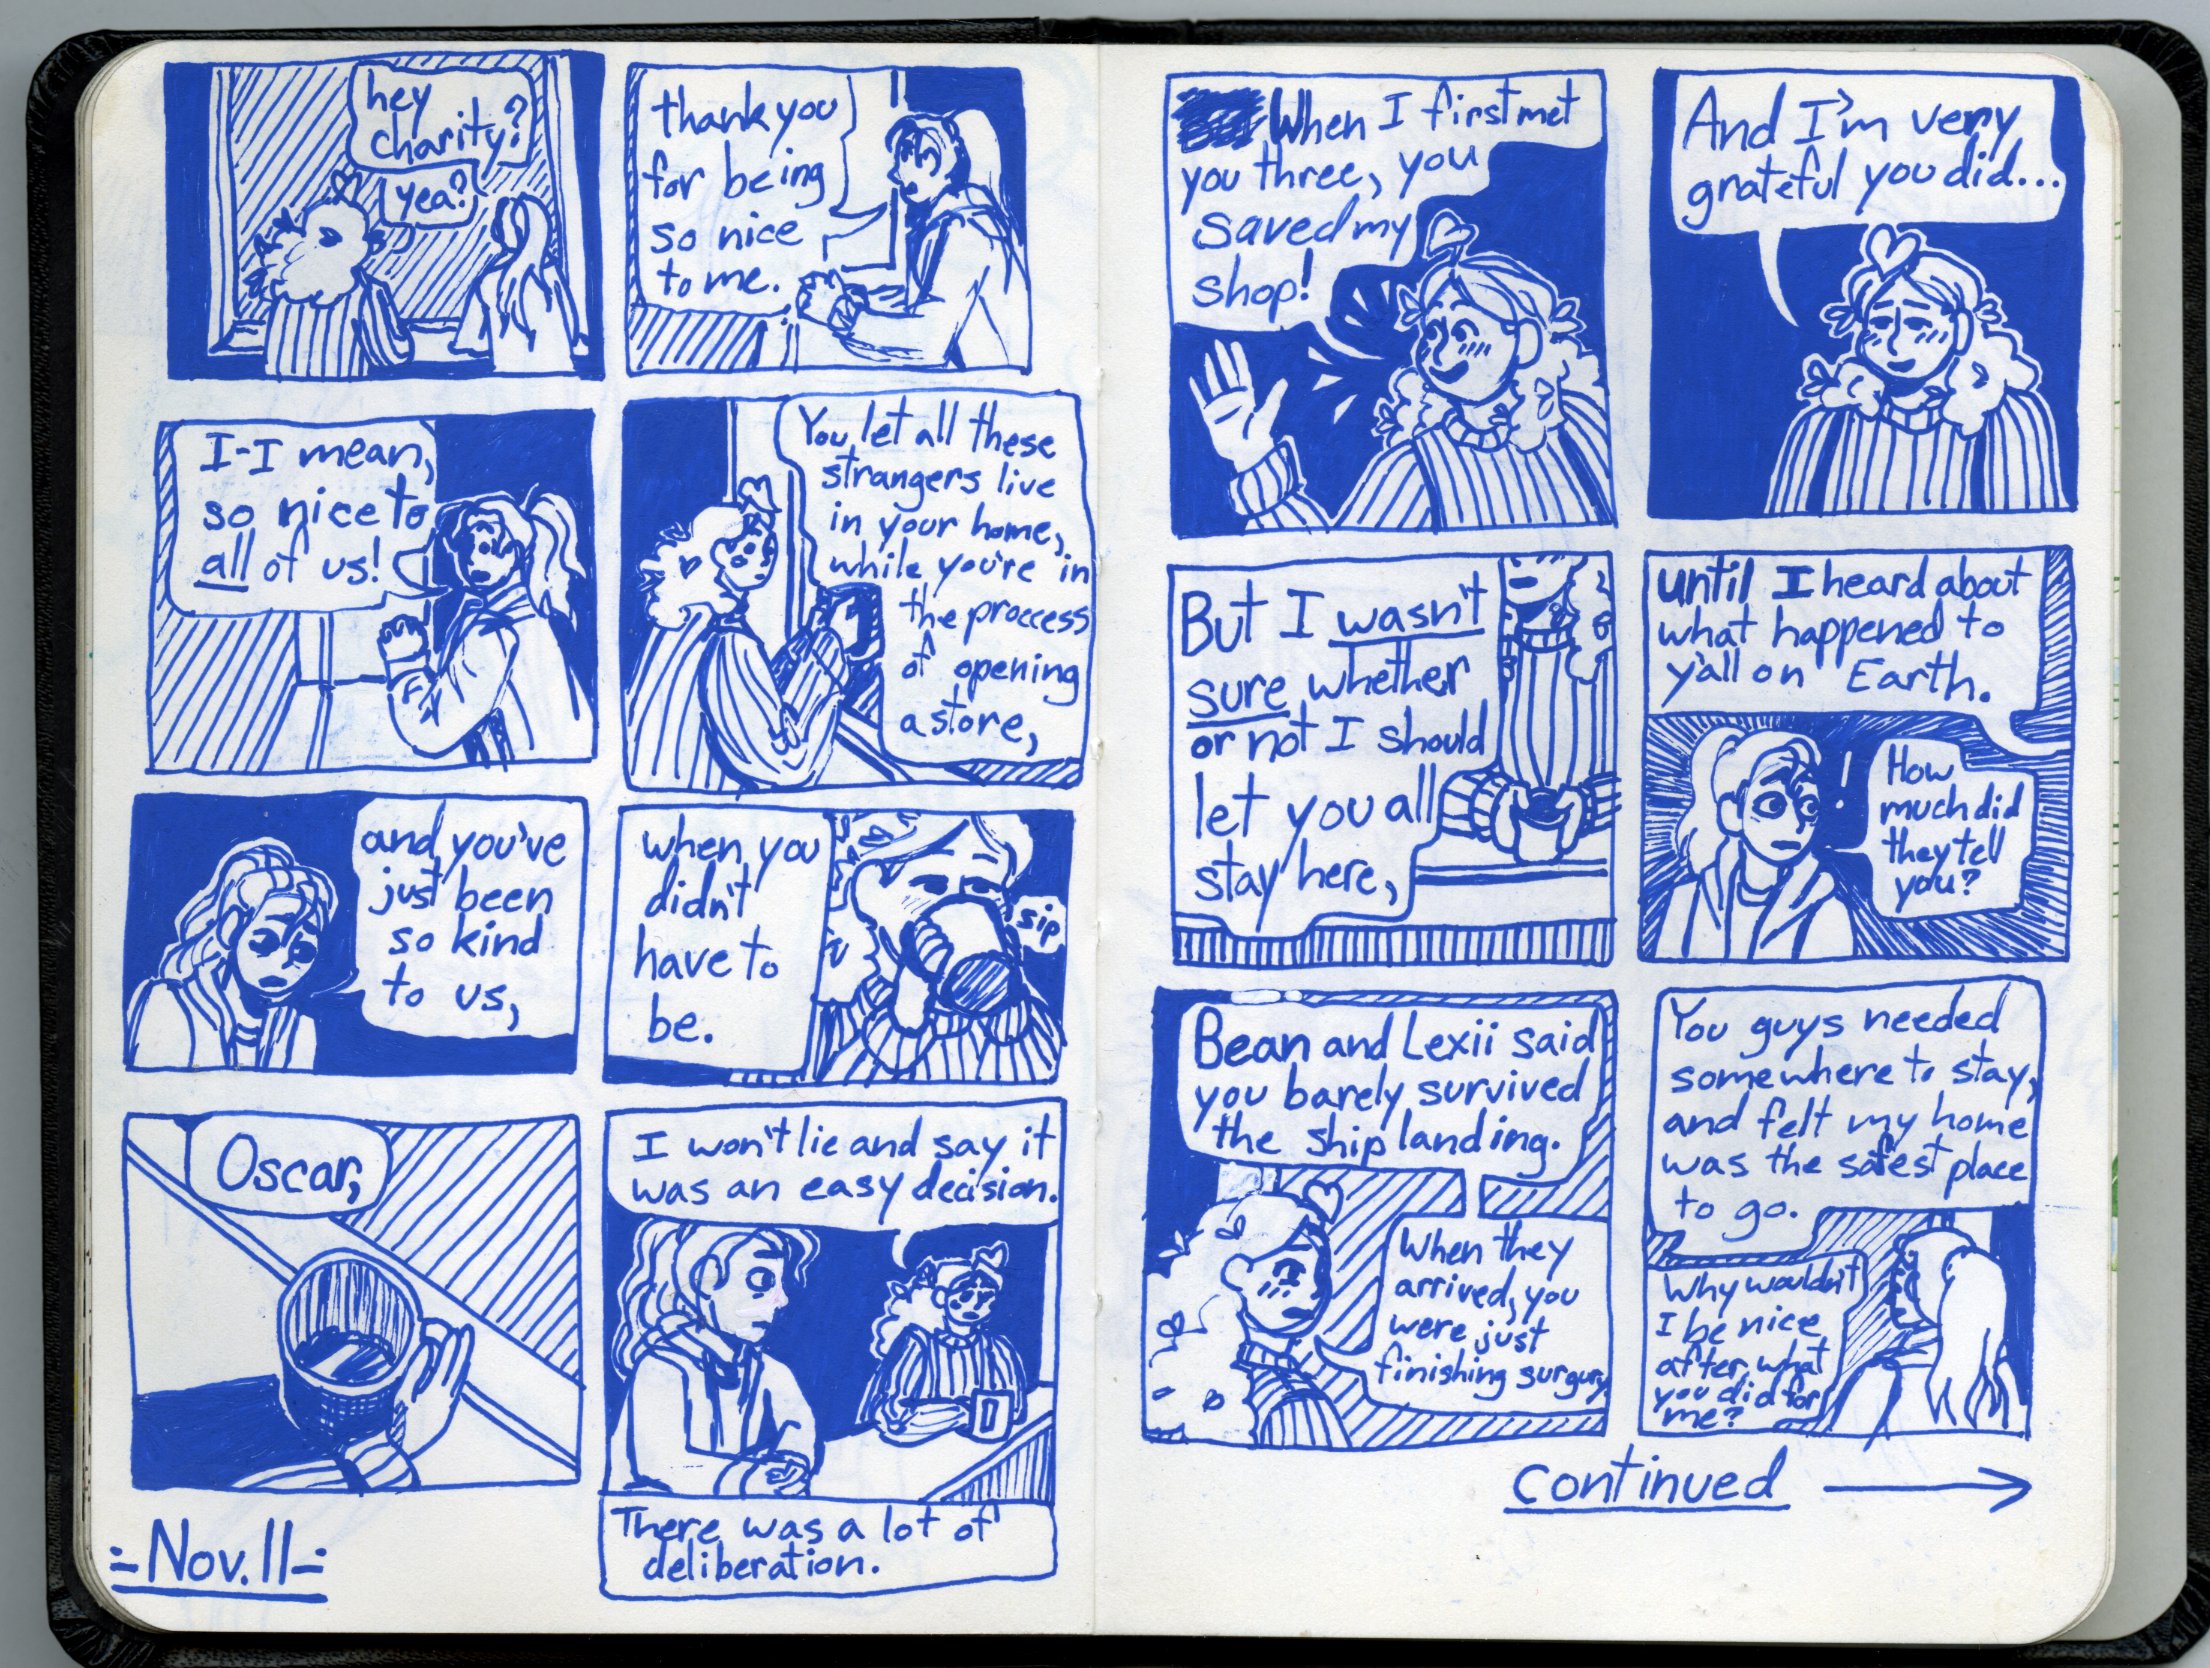 hey
charity?
yea?
thank you
for being
so nice
to me.
I-I mean,
so nice to
all of us!
You let all these
strangers live
in your home,
while you're in
the proccess
of opening
a store,
and you've
just been
so kind
to us,
when you
didn't
have to
be.
sip
Oscar,
I won't lie and say it
was an easy decision.
There was a lot of
deliberation.
-Nov. 11-
When I first met
you three, you
saved my
shop!
And I'm very
grateful you did...
But I wasn't
sure whether
or not I should
let you all
stay here,
until I heard about
what happened to
y'all on Earth.
!
How
much did
they tell
you?
Bean and Lexii said
you barely survived
the ship landing.
When they
arrived, you
were just
finishing surgury
You guys needed
somewhere to stay,
and felt my home
was the safest place
to go.
Why wouldn't
I be nice
after what
you did for
me?
continued